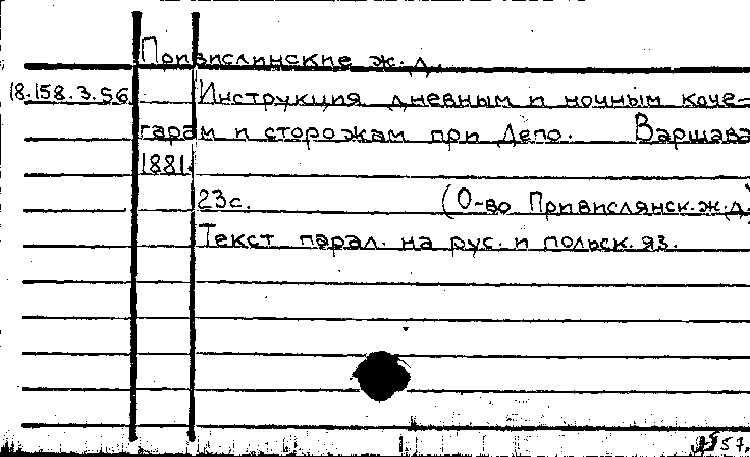 Привислинские ж.д.
18.158.3.56 Инструкция дневным и ночным коче-
гарам и сторожам при Депо. Варшава
1881.
23с. (О-во Привислянск.ж.д.)
Текст парал. на рус. и польск. яз.